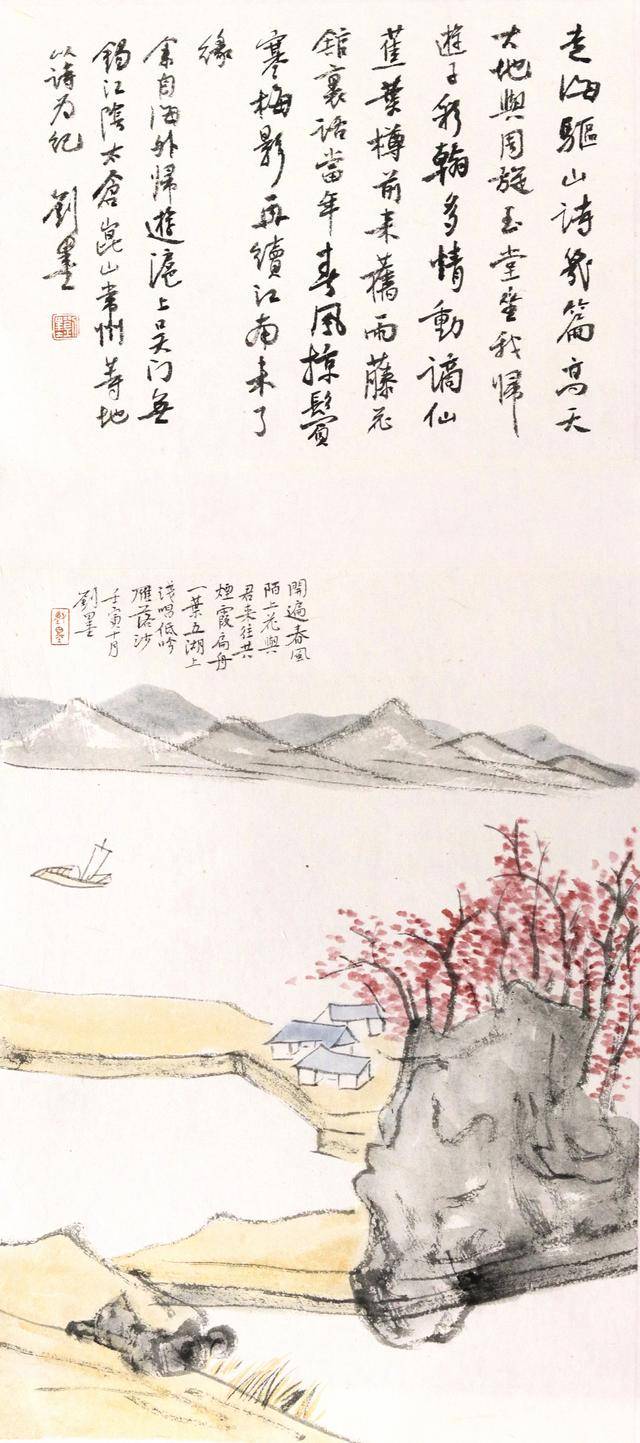 走海驅山詩幾篇高天
大地與周旋玉堂我歸
遊子彩翰多情動謫仙
蕉葉樽前來舊雨藤花
館裏話當年春風掠鬢
寒梅影再續江南未了
緣
余自海外歸遊滬上吳門無
錫江陰太倉崑山常州等地
以詩為紀 劉墨
開遍春風
陌上花與
君來往共
煙霞扁舟
一葉五湖上
淺唱低吟
雁落沙
壬寅十月
劉墨